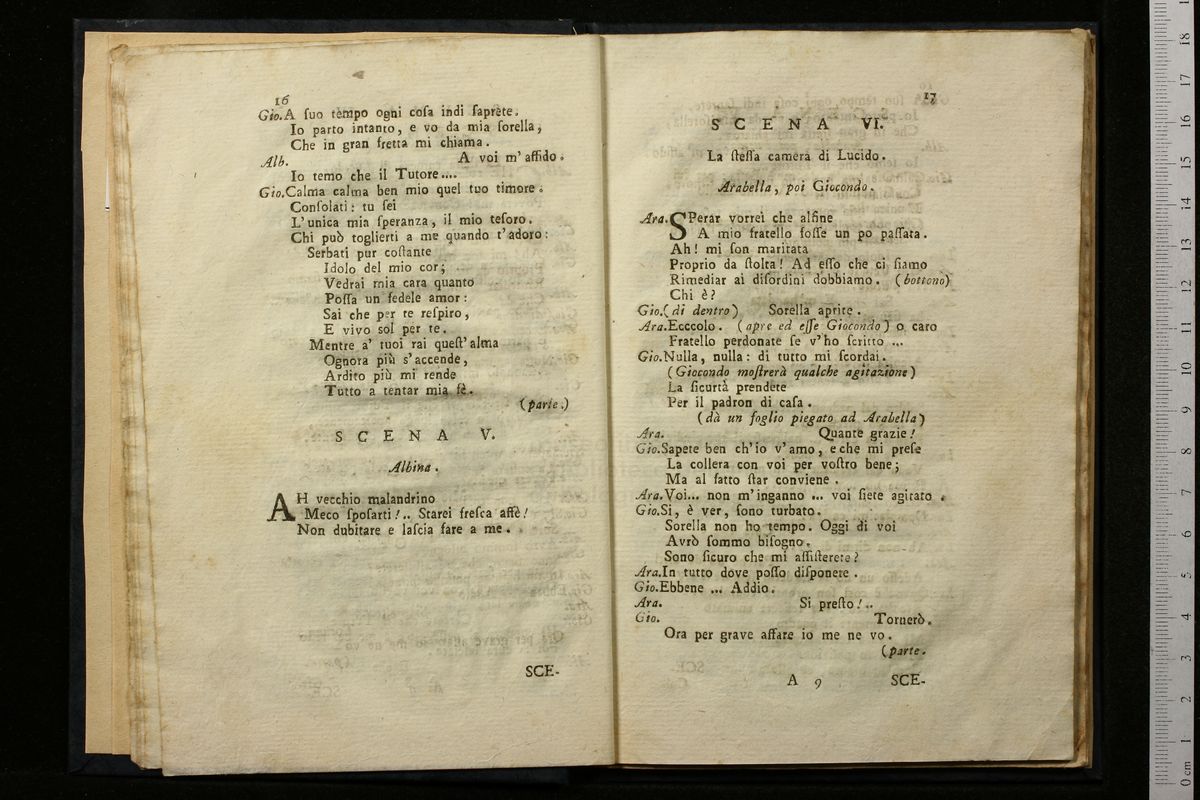 16
Gio. A ſuo tempo ogni coſa indi ſaprete.
Io parto intanto, e vo da mia ſorella,
Che in gran fretta mi chiama.
Alb. A voi m'affido.
Io temo che il Tutore....
Gio. Calma calma ben mio quel tuo timore.
Conſolati: tu ſei
L'unica mia ſperanza, il mio teſoro.
Chi può toglierti a me quando t'adoro:
Serbati pur coſtante
Idolo del mio cor;
Vedrai mia cara quanto
Poſſa un fedele amor:
Sai che per te reſpiro,
E vivo sol per te.
Mentre a' tuoi rai queſt'alma
Ognora più s'accende,
Ardito più mi rende
Tutto a tentar mia fè.
(parte.)
SCENA V.
Albina.
AH vecchio malandrino
Meco ſpoſarti!.. Starei freſca affè!
Non dubitare e laſcia fare a me.
SCE-
17
SCENA VI.
La ſteſſa camera di Lucido.
Arabella, poi Giocondo.
Ara. SPerar vorrei che alfine
A mio fratello foſſe un po paſſata.
Ah! mi ſon maritata
Proprio da ſtolta! Ad eſſo che ci ſiamo
Rimediar ai diſordini dobbiamo. (bottono)
Chi è?
Gio. (di dentro) Sorella aprite.
Ara. Ecccolo. (apre ed eſſe Giocondo) o caro
Fratello perdonate ſe v'ho ſcritto ...
Gio. Nulla, nulla: di tutto mi ſcordai.
(Giocondo moſtrerà qualche agitazione)
La ſicurtà prendete
Per il padron di caſa.
(dà un foglio piegato ad Arabella)
Ara. Quante grazie!
Gio. Sapete ben ch'io v'amo, e che mi preſe
La collera con voi per voſtro bene;
Ma al fatto ſtar conviene.
Ara. Voi... non m'inganno ... voi ſiete agitato.
Gio. Si, è ver, ſono turbato.
Sorella non ho tempo. Oggi di voi
Avrò ſommo biſogno.
Sono ſicuro che mi aſſiſterete?
Ara. In tutto dove poſſo diſponete.
Gio. Ebbene ... Addio.
Ara. Si preſto!..
Gio. Tornerò.
Ora per grave affare io me ne vo.
(parte.
A 9 SCE-
0 cm 1 2 3 4 5 6 7 8 9 10 11 12 13 14 15 16 17 18